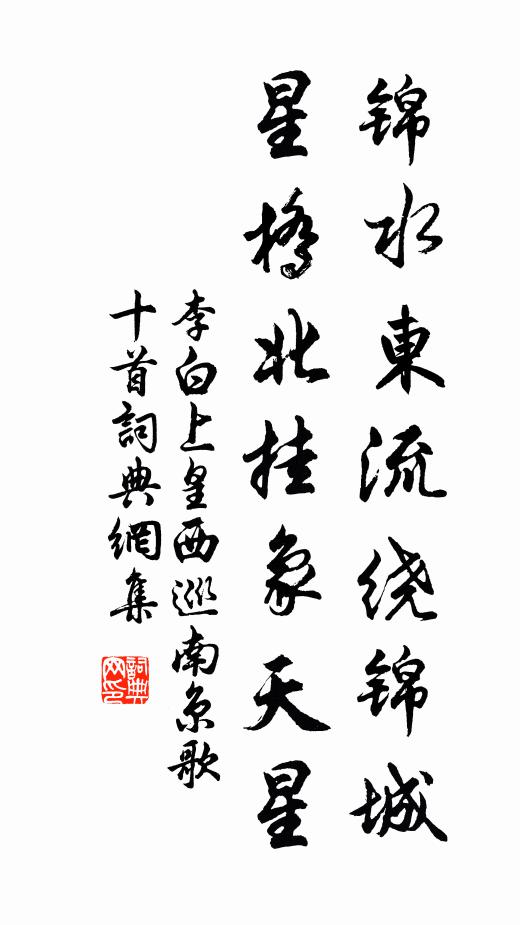 锦水東流绕锦城
星橋北挂象天星
李白上皇西巡南京歌
十首詞典網集
詞典网印